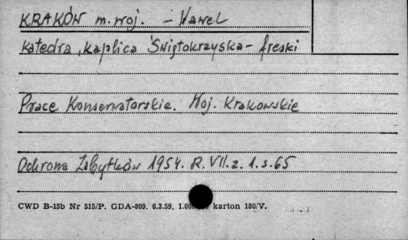 KRAKÓW m. woj. - Wawel
Katedra, kaplica Świętokrzyska - freski
Prace Konserwatorskie. Woj. Krakowskie
Ochrona Zabytków 1954. R. VII. z. 1. s. 65
CWD B-15b Nr 515/P. GDA-809. 6.3.59, karton 180/V.